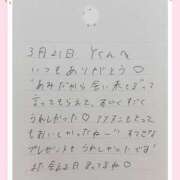 3月21日 Yくんへ
いつもありがとう♡
"あみだから会い来てる"って
言ってもらえて、すっごくすごく
うれしかった♡
とってもおいしかったねー！すてきな
プレゼントもうれしかったです
また会える日まってるね♡